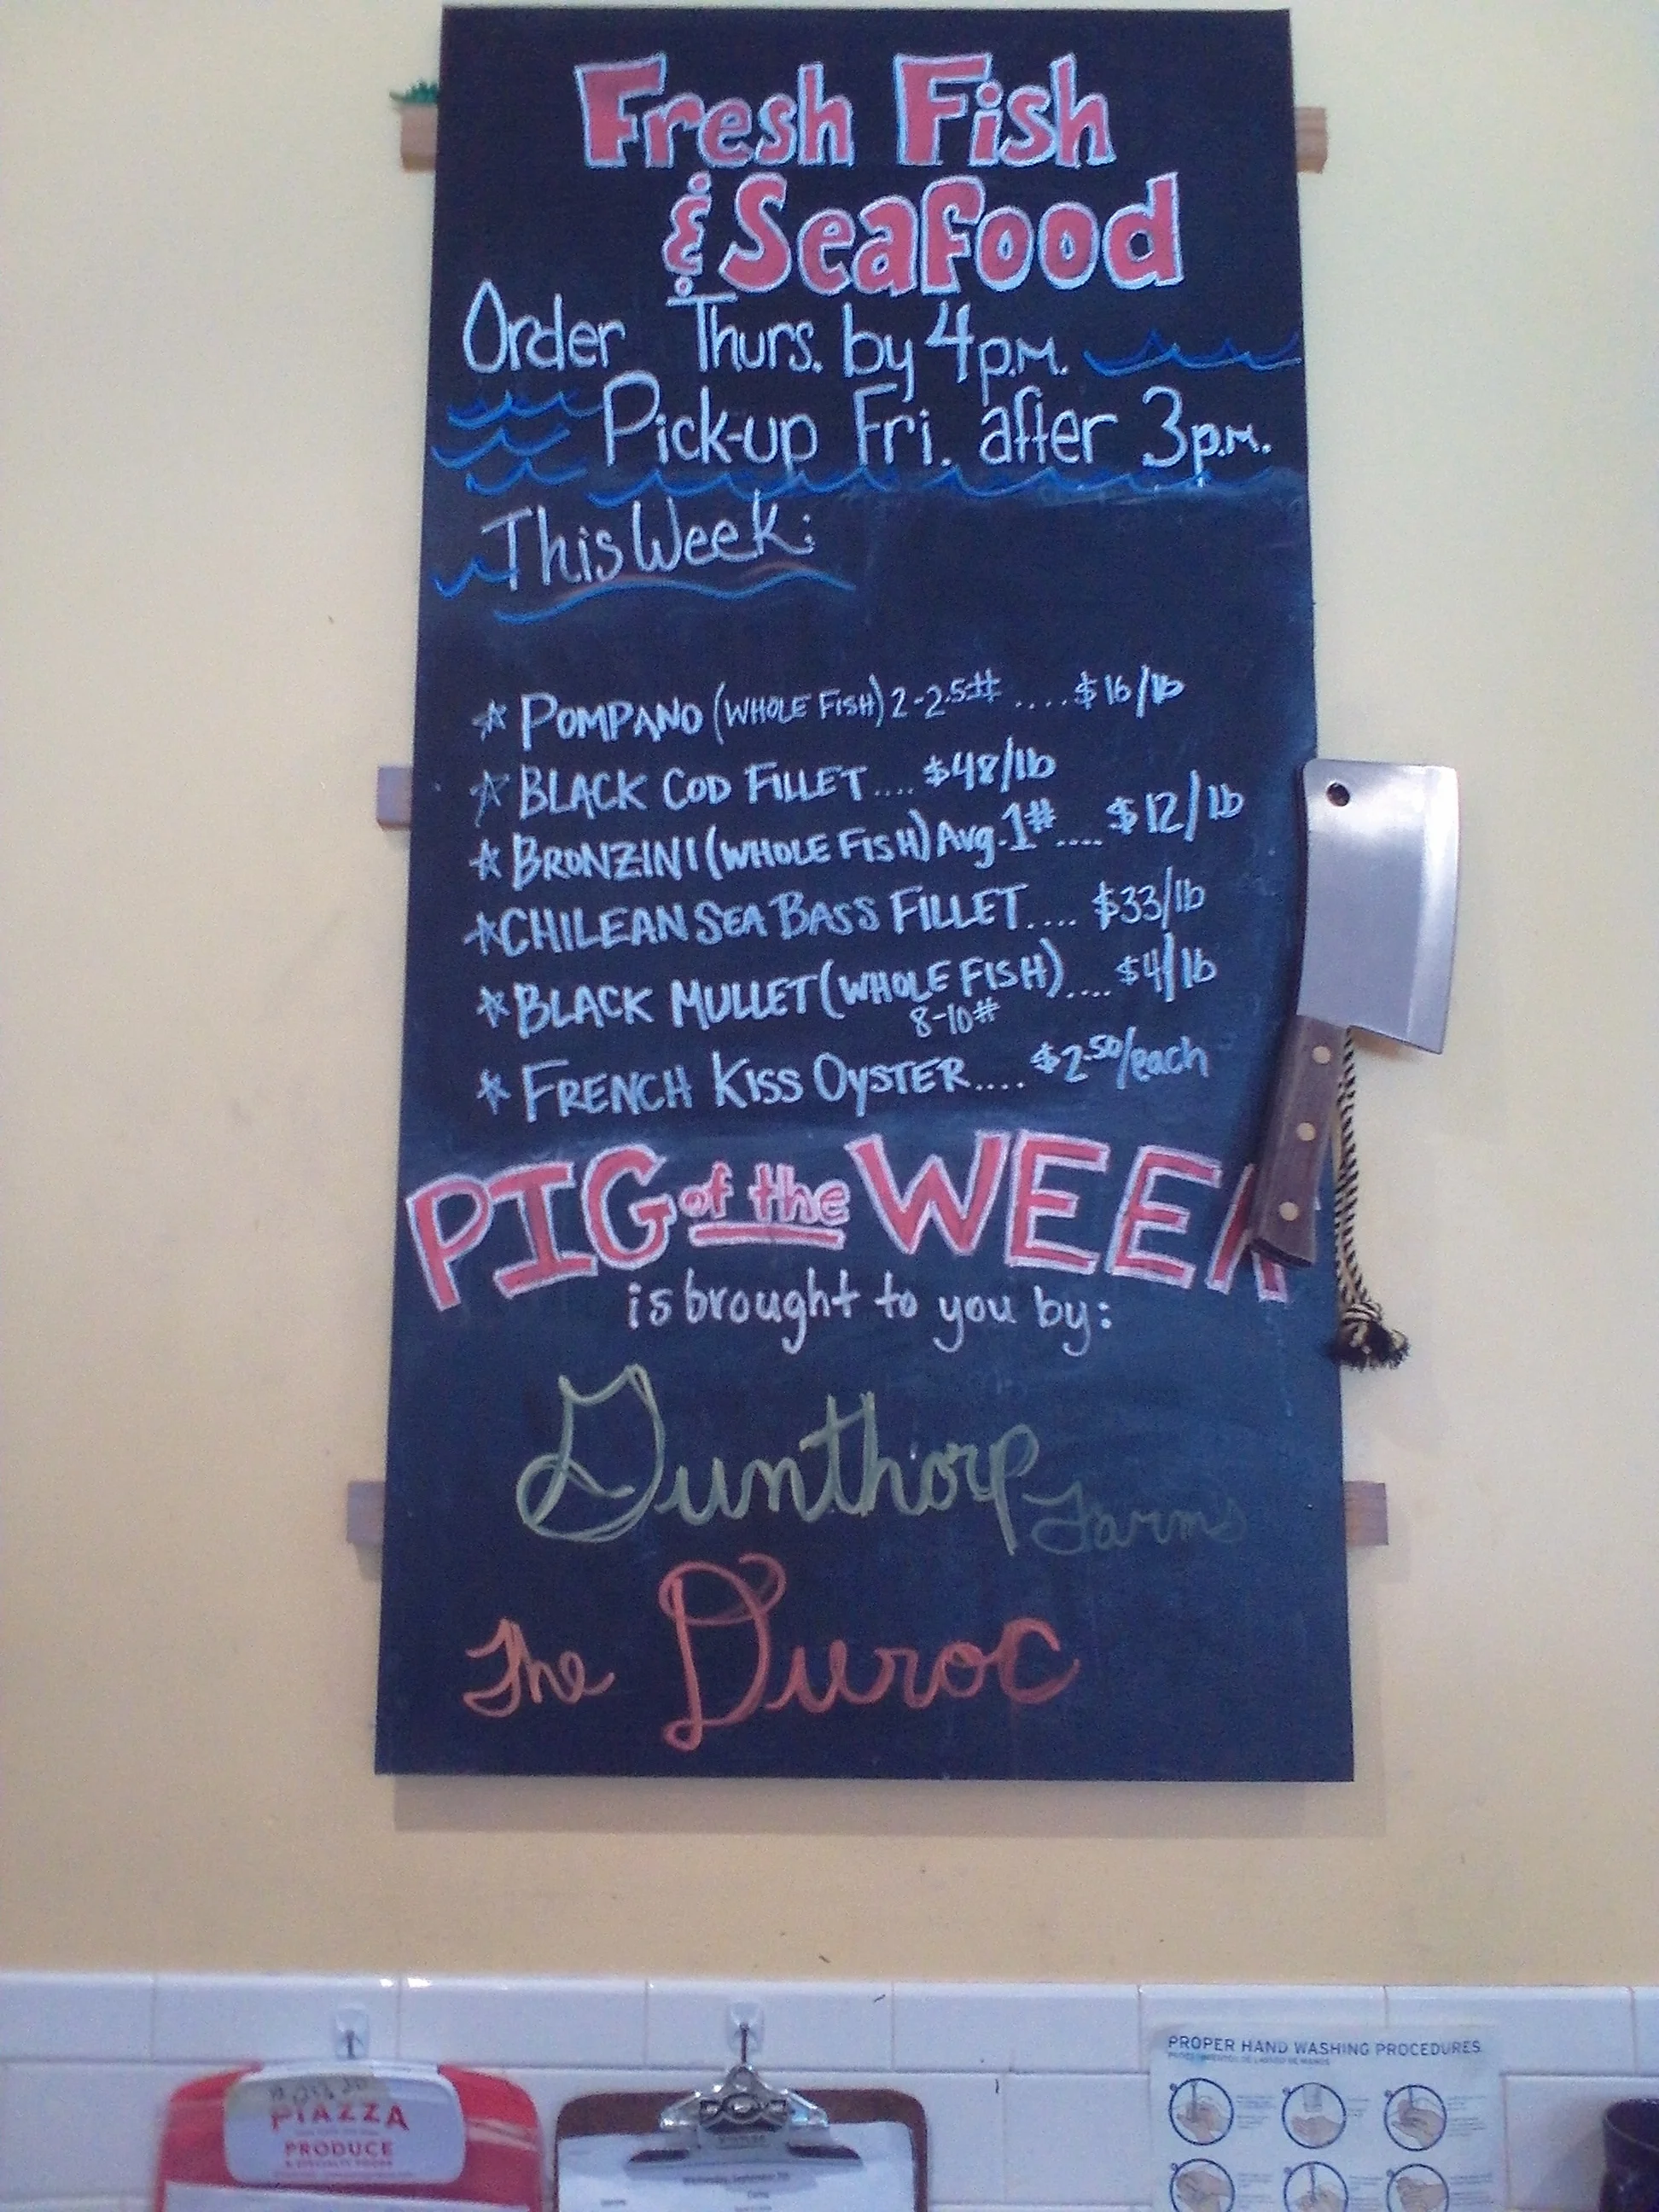 Fresh Fish
& Seafood
Order Thurs. by 4 p.m.
Pick-up Fri. after 3 p.m.
This Week:
POMPANO (WHOLE FISH) 2-2.5# .... $16/lb
BLACK COD FILLET.... $48/lb
BRONZINI (WHOLE FISH) Avg. 1# .... $12/lb
CHILEAN SEA BASS FILLET.... $33/lb
BLACK MULLET (WHOLE FISH).... $4/lb
8-10#
FRENCH KISS OYSTER.... $2.50/each
PIG of the WEEK
is brought to you by:
Gunthorp Farms
The Duroc
PROPER HAND WASHING PROCEDURES
PIAZZA
PRODUCE
& SPECIALTY FOODS